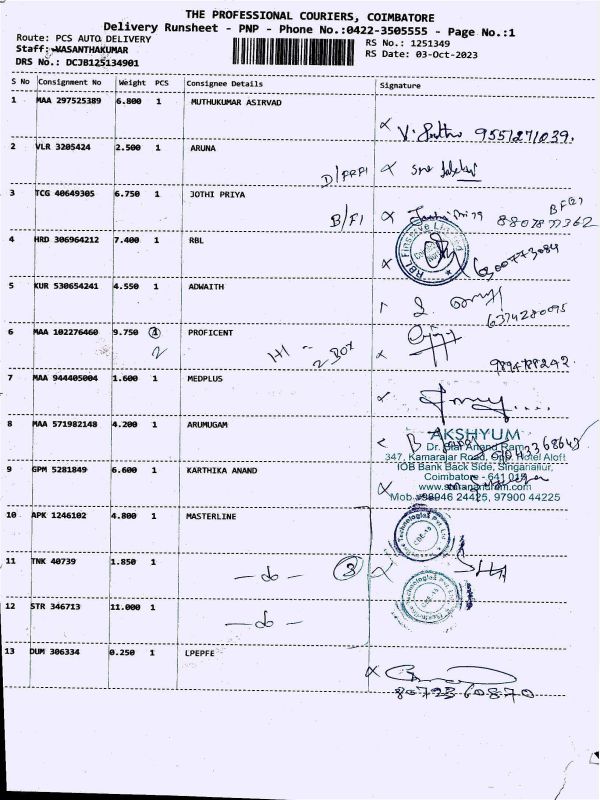 THE PROFESSIONAL COURIERS, COIMBATORE
Delivery Runsheet - PNP - Phone No.:0422-3505555 - Page No.:1
Route: PCS AUTO DELIVERY
RS No.: 1251349
Staff: VASANTHAKUMAR
RS Date: 03-Oct-2023
DRS No.: DCJB125134901
S No Consignment No Weight PCS Consignee Details Signature
1 MAA 297525389 6.800 1 MUTHUKUMAR ASIRVAD
9551271039.
2 VLR 3205424 2.500 1 ARUNA
3 TCG 40649305 6.750 1 JOTHI PRIYA
B/F1
4 HRD 306964212 7.400 1 RBL
RBL Finserve Limited
5 KUR 530654241 4.550 1 ADWAITH
6374280095
6 MAA 102276460 9.750 1 PROFICENT
2
1+1 = 2 BOX
9894788242
7 MAA 944405004 1.600 1 MEDPLUS
8 MAA 571982148 4.200 1 ARUMUGAM
AKSHYUM
Dr. Anand Ram
347, Kamarajar Road, Opp. Hotel Aloft
IOB Bank Back Side, Singanallur,
Coimbatore - 641 015
Mob. : 98946 24425, 97900 44225
9 GPM 5281849 6.600 1 KARTHIKA ANAND
10 APK 1246102 4.800 1 MASTERLINE
11 TNK 40739 1.850 1
- do - 3
12 STR 346713 11.000 1
- do -
13 DUM 306334 0.250 1 LPEPFE
8072360870